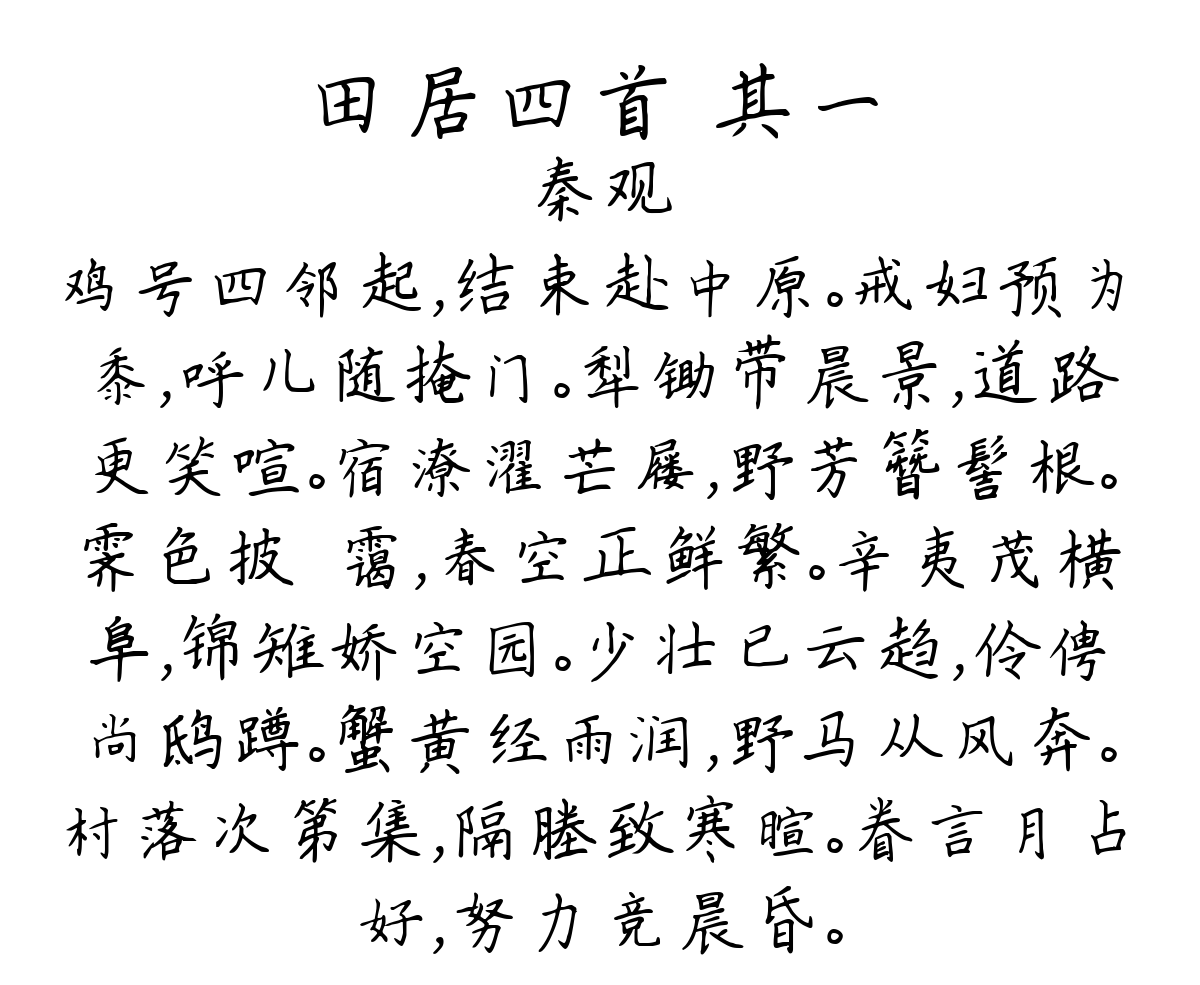 田居四首 其一
秦观
鸡号四邻起,结束赴中原。戒妇预为
黍,呼儿随掩门。犁锄带晨景,道路
更笑喧。宿潦濯芒屦,野芳簪髻根。
霁色披 霭,春空正鲜繁。辛夷茂横
阜,锦雉娇空园。少壮已云趋,伶俜
尚鸱蹲。蟹黄经雨润,野马从风奔。
村落次第集,隔塍致寒暄。眷言月占
好,努力竞晨昏。